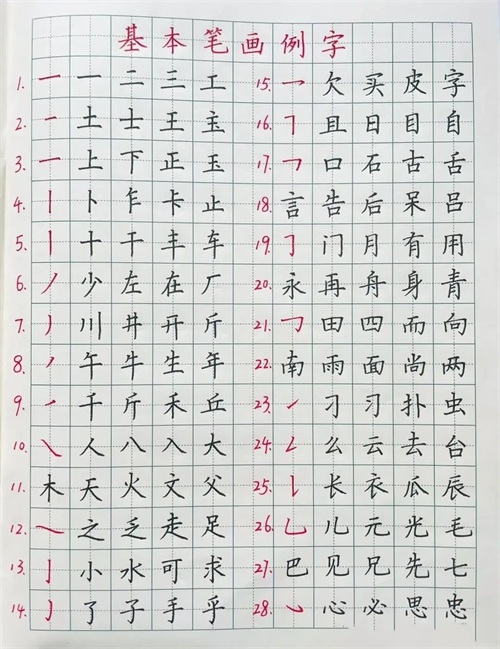 基本笔画例字
1. 一 一 二 三 工
2. 一 土 士 王 主
3. 一 上 下 正 玉
4. 丨 卜 乍 卡 止
5. 丨 十 干 丰 车
6. 丿 少 左 在 厂
7. 丿 川 井 开 斤
8. 丿 午 牛 生 年
9. ㇀ 千 斤 禾 丘
10. ㇏ 人 八 入 大
11. 木 天 火 文 父
12. ㇏ 之 乏 走 足
13. 亅 小 水 可 求
14. 亅 了 子 手 乎
15. 乛 欠 买 皮 字
16. ㇕ 且 日 目 自
17. ㇕ 口 石 古 舌
18. 言 告 后 呆 吕
19. ㇆ 门 月 有 用
20. 永 再 舟 身 青
21. ㇆ 田 四 而 向
22. 南 雨 面 尚 两
23. ㇀ 刁 习 扑 虫
24. ㇜ 么 云 去 台
25. ㇙ 长 衣 瓜 辰
26. 乚 儿 元 光 毛
27. 巴 见 兄 先 七
28. ㇃ 心 必 思 忠